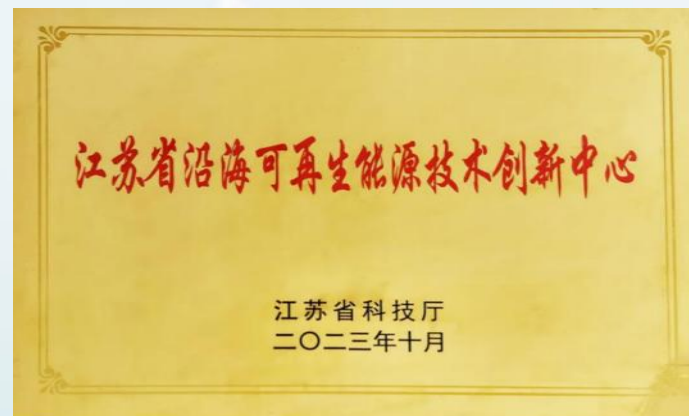 江苏省沿海可再生能源技术创新中心
江苏省科技厅
二〇二三年十月